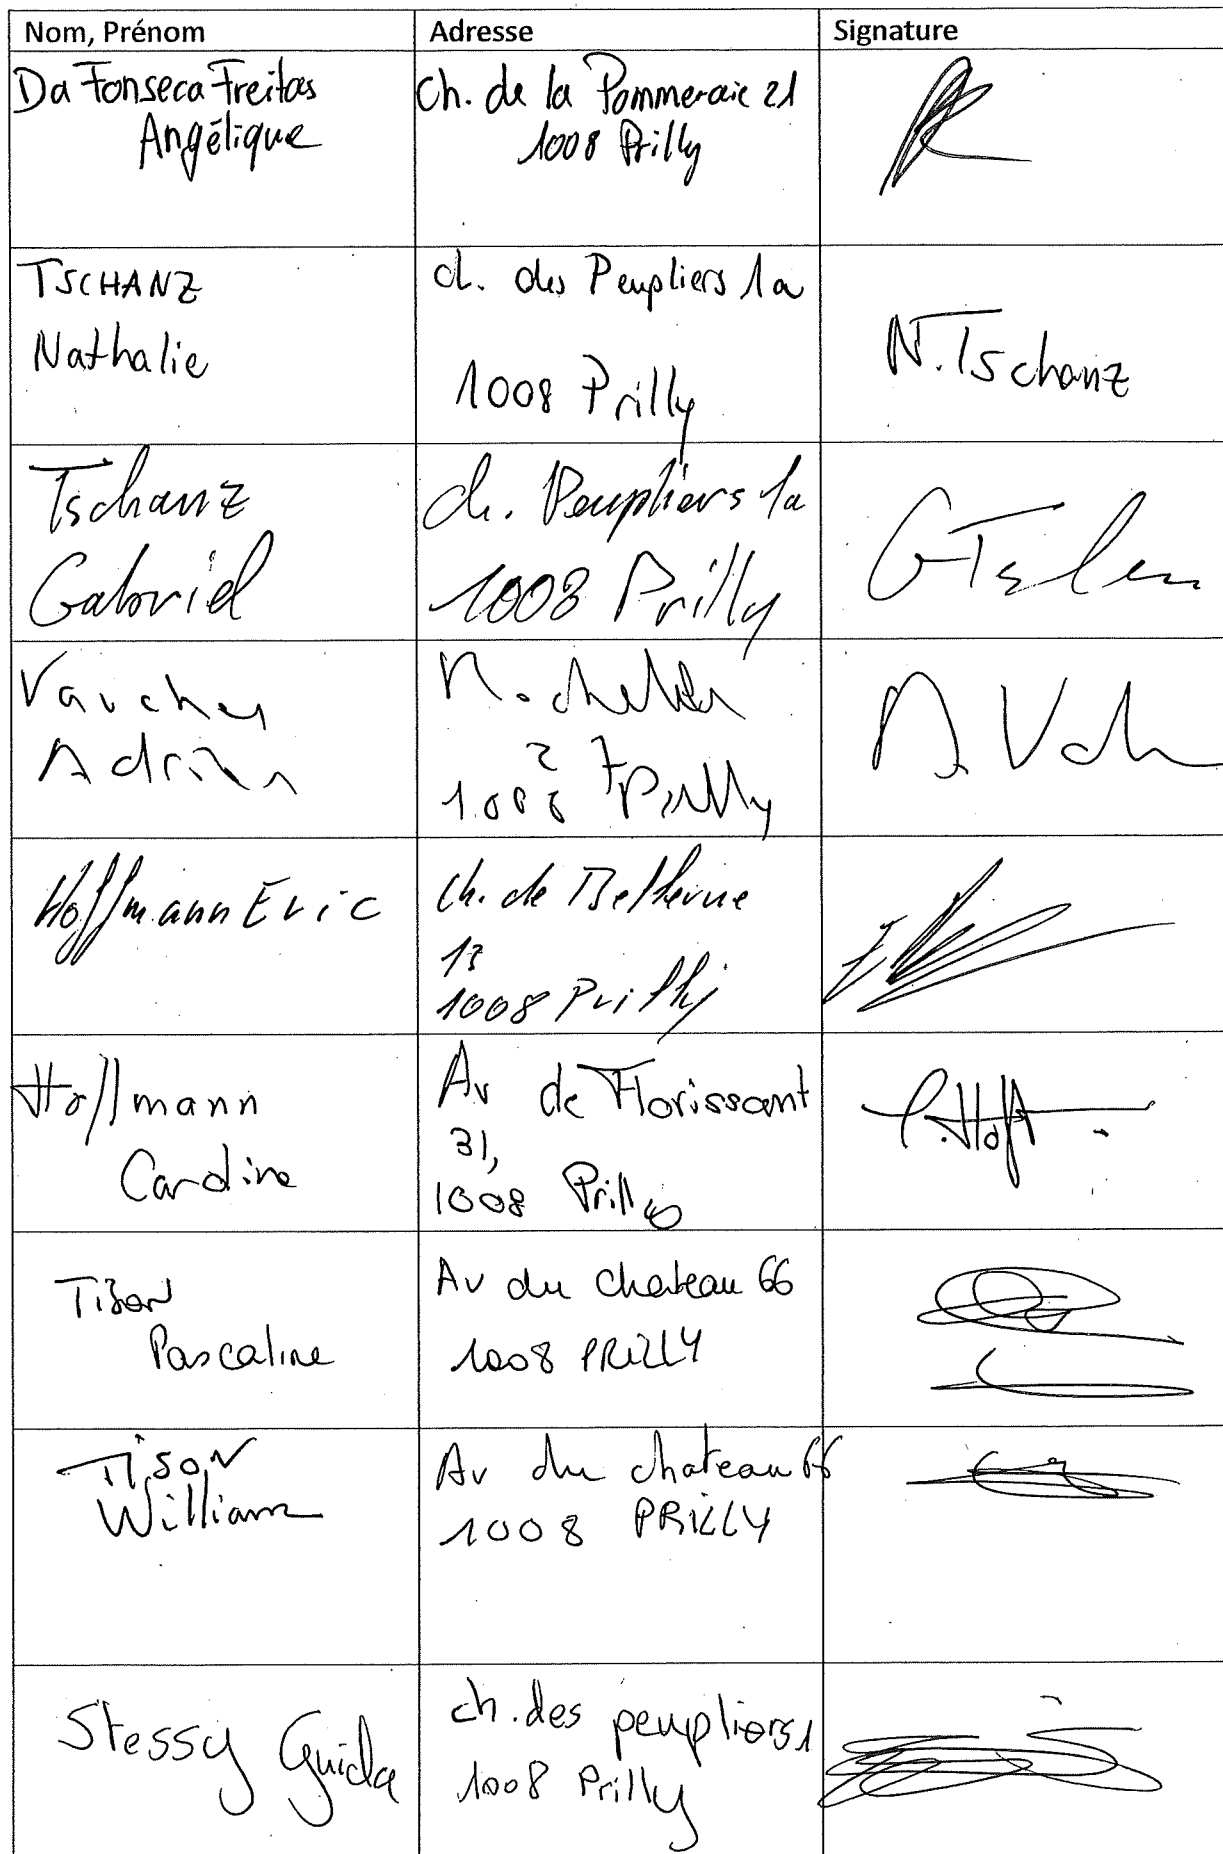 Nom, Prénom Adresse Signature
Da Fonseca Freitas
Angélique
Ch. de la Pommeraie 21
1008 Prilly
TSCHANZ
Nathalie
ch. des Peupliers 1a
1008 Prilly
N. Tschanz
Tschanz
Gabriel
ch. Peupliers 1a
1008 Prilly
Vaucher
Adrien
1008 Prilly
Hoffmann Eric
Ch. de Bellevue
13
1008 Prilly
Hoffmann
Caroline
Av de Florissant
31,
1008 Prilly
C. Hoff
Tison
Pascaline
Av du chateau 66
1008 PRILLY
Tison
William
Av du chateau 66
1008 PRILLY
Stessy Guida
ch. des peupliers 1
1008 Prilly